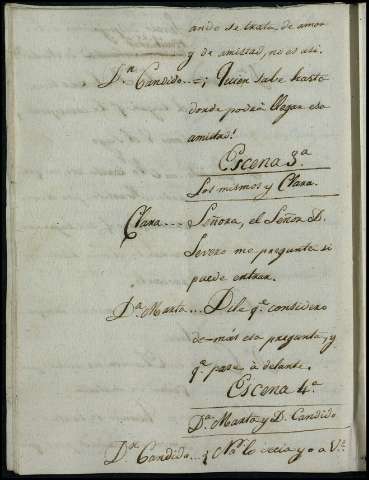 ando se trata de amor
y de amistad, no es asi.
D.n Candido..=¡ Quien sabe hasta
donde podrà llegar esa
amistad!
Escena 3.a
Los mismos y Clara.
Clara.... Señora, el Señor D.
Severo me pregunta si
puede entrar.
D.a Marta... Dile q.e considero
de-màs esa pregunta, y
q.e pase à delante.
Escena 4.a
D.a Marta y D. Candido
D.n Candido...¿ No lo decia yo a V.